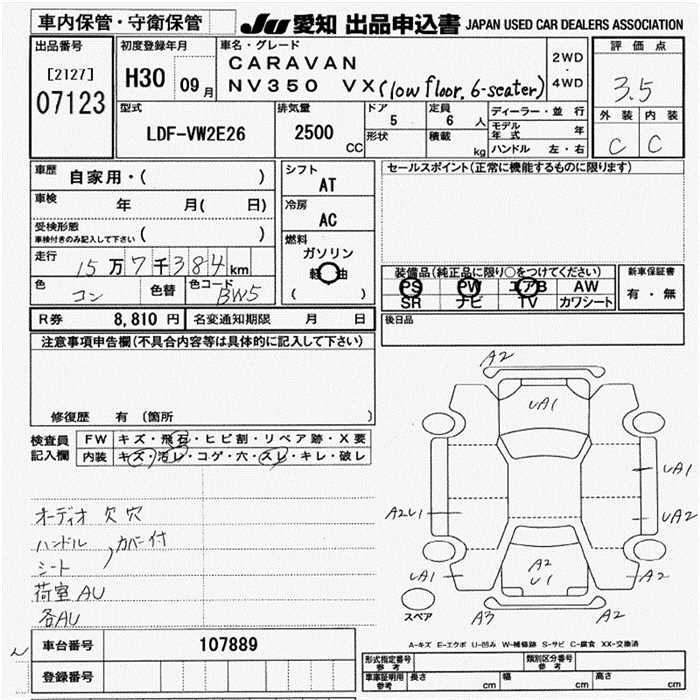 車内保管・守衛保管
JU 愛知 出品申込書 JAPAN USED CAR DEALERS ASSOCIATION
出品番号
[2127]
07123
初度登録年月
H30 09月
車名・グレード
CARAVAN
NV350 VX(low floor, 6-seater)
2WD
・
4WD
評価点
3.5
外装 内装
C C
型式
LDF-VW2E26
排気量
2500
CC
ドア
5
定員
6 人
形状
積載
kg
ディーラー・並行
モデル年式 年
ハンドル 左・右
車歴
自家用・( )
車検
年 月( 日)
受検形態
車検付きのみ記入して下さい ( )
走行
15万7千384km
色
コン
色替
色コード
BW5
シフト
AT
冷房
AC
燃料
ガソリン
軽油
( )
セールスポイント(正常に機能するものに限ります)
装備品(純正品に限り○をつけてください)
PS PW エアB AW
SR ナビ TV カワシート
新車保証書
有・無
R券 8,810 円 名変通知期限 月 日
後日品
注意事項申告欄(不具合内容等は具体的に記入して下さい)
修復歴 有(箇所 )
検査員
記入欄
FW キズ・飛石・ヒビ割・リペア跡・X要
内装 キズ・汚レ・コゲ・穴・スレ・キレ・破レ
オーディオ欠穴
ハンドル
シート
カバー付
荷室AU
各AU
A2
UA1
UA1
A2U1
UA2
UA1
A2
U1
A2
A3
A2
スペア
A-キズ E-エクボ U-凹み W-補修跡 S-サビ C-腐食 XX-交換済
車台番号 107889
登録番号
型式指定番号
参考
類別区分番号
参考
車庫証明用
参考
長さ cm 幅 cm 高さ cm